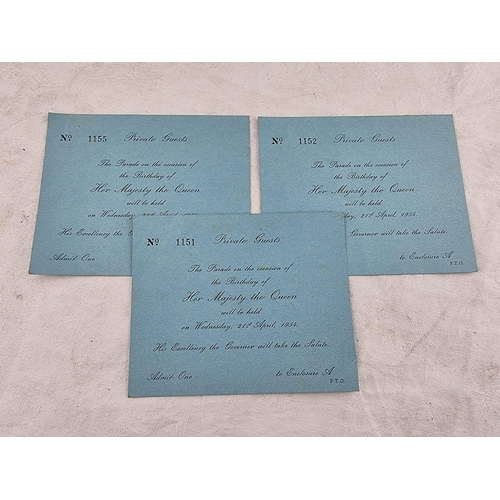 Nº 1155 Private Guests
The Parade on the occasion of
the Birthday of
Her Majesty the Queen
will be held
on Wednesday, 21st April, 1954.
His Excellency the
Admit One
Nº 1152 Private Guests
The Parade on the occasion of
the Birthday of
Her Majesty the Queen
will be held
Wednesday, 21st April, 1954.
Governor will take the Salute.
to Enclosure A
P.T.O.
Nº 1151 Private Guests
The Parade on the occasion of
the Birthday of
Her Majesty the Queen
will be held
on Wednesday, 21st April, 1954.
His Excellency the Governor will take the Salute.
Admit One to Enclosure A
P.T.O.